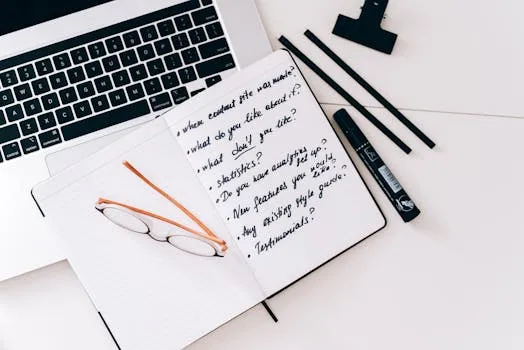 • site was made?
• what do you like about it?
• what don't you like?
• statistics?
• Do you have analytics
set up?
• New features you would
like?
• Any existing style guide?
• Testimonials?